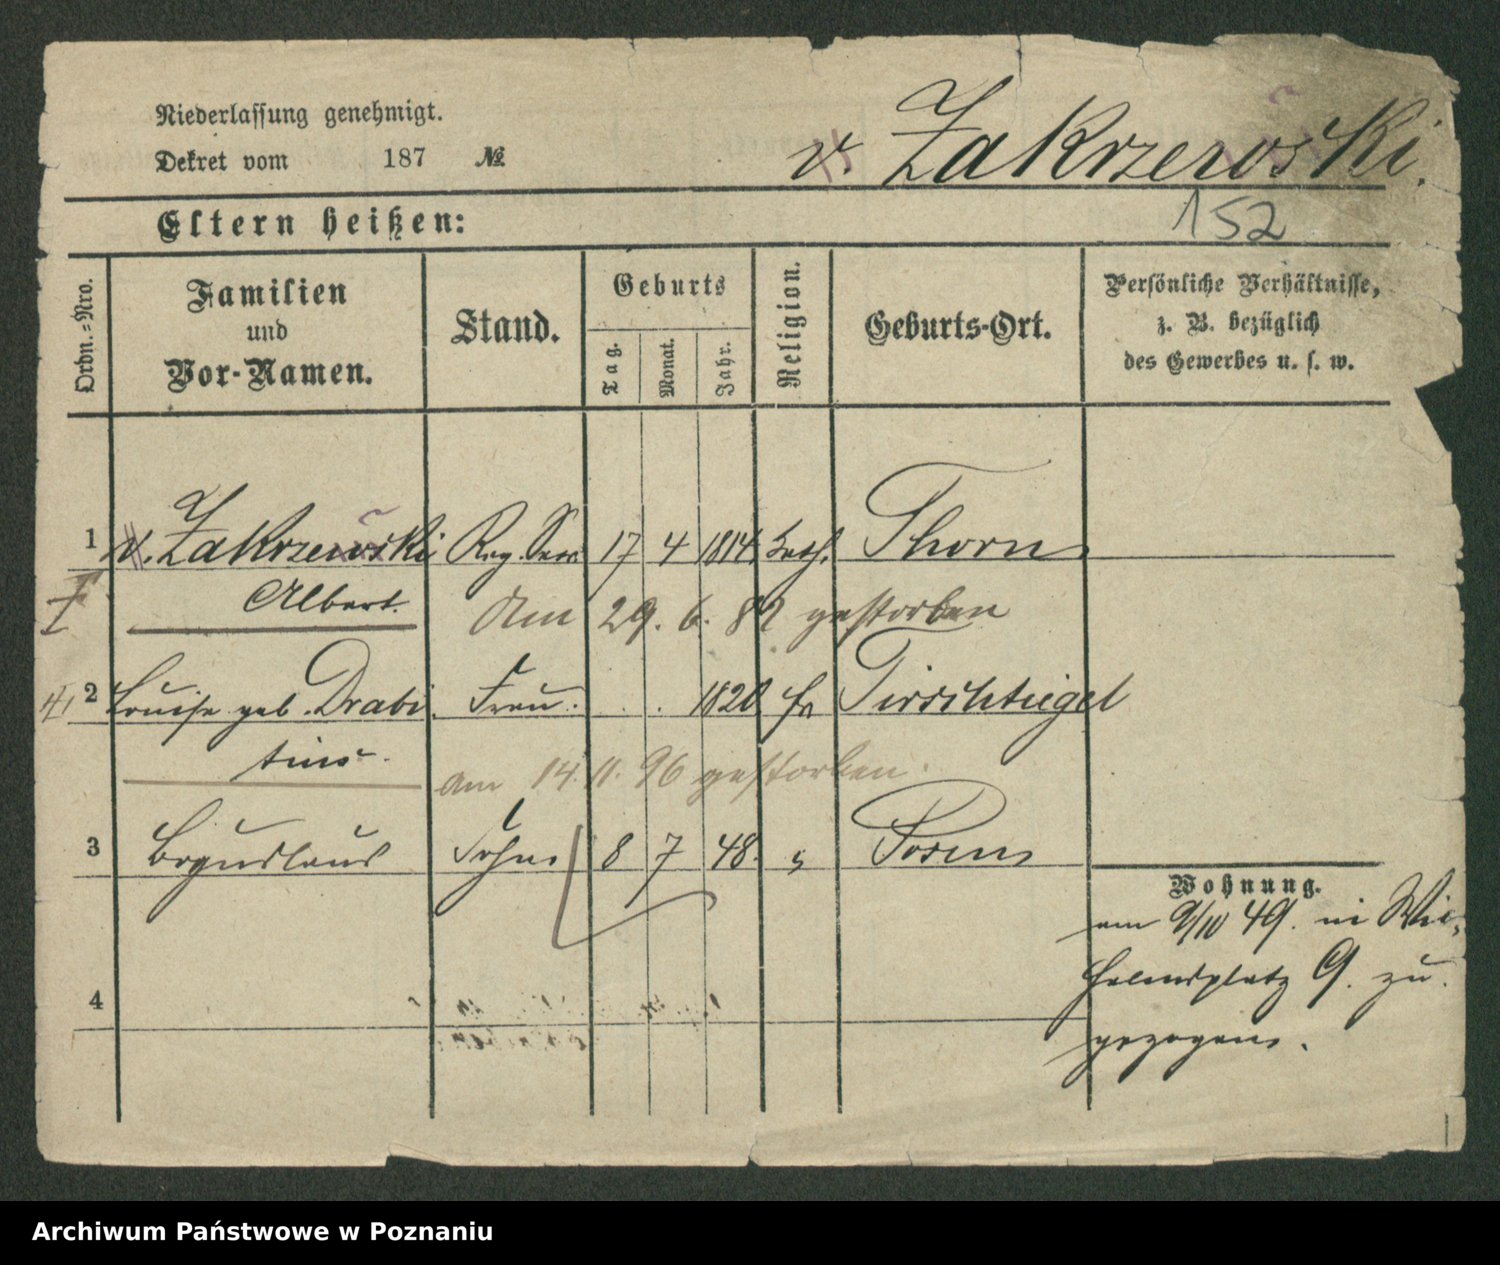 Niederlassung genehmigt.
Dekret vom 187 №
v. Zakrzewski.
152
Eltern heißen:
Ordn.=Nro.
Familien
und
Vor-Namen.
Stand.
Geburts
Tag.
Monat.
Jahr.
Religion.
Geburts-Ort.
Persönliche Verhältnisse,
z. B. bezüglich
des Gewerbes u. s. w.
1 v. Zakrzewski Reg. 17 4 1814 kath. Thorn
Albert. Am 29. 6. 82 gestorben
2 Louise geb. Drabi Frau. 1820 Tirschtiegel
tius am 14. 11. 96 gestorben.
3 Boguslaus Sohn 8 7 48. " Posen
Wohnung.
am 9/10 49. in Wil
helmsplatz 9. zu
gezogen.
4
Archiwum Państwowe w Poznaniu